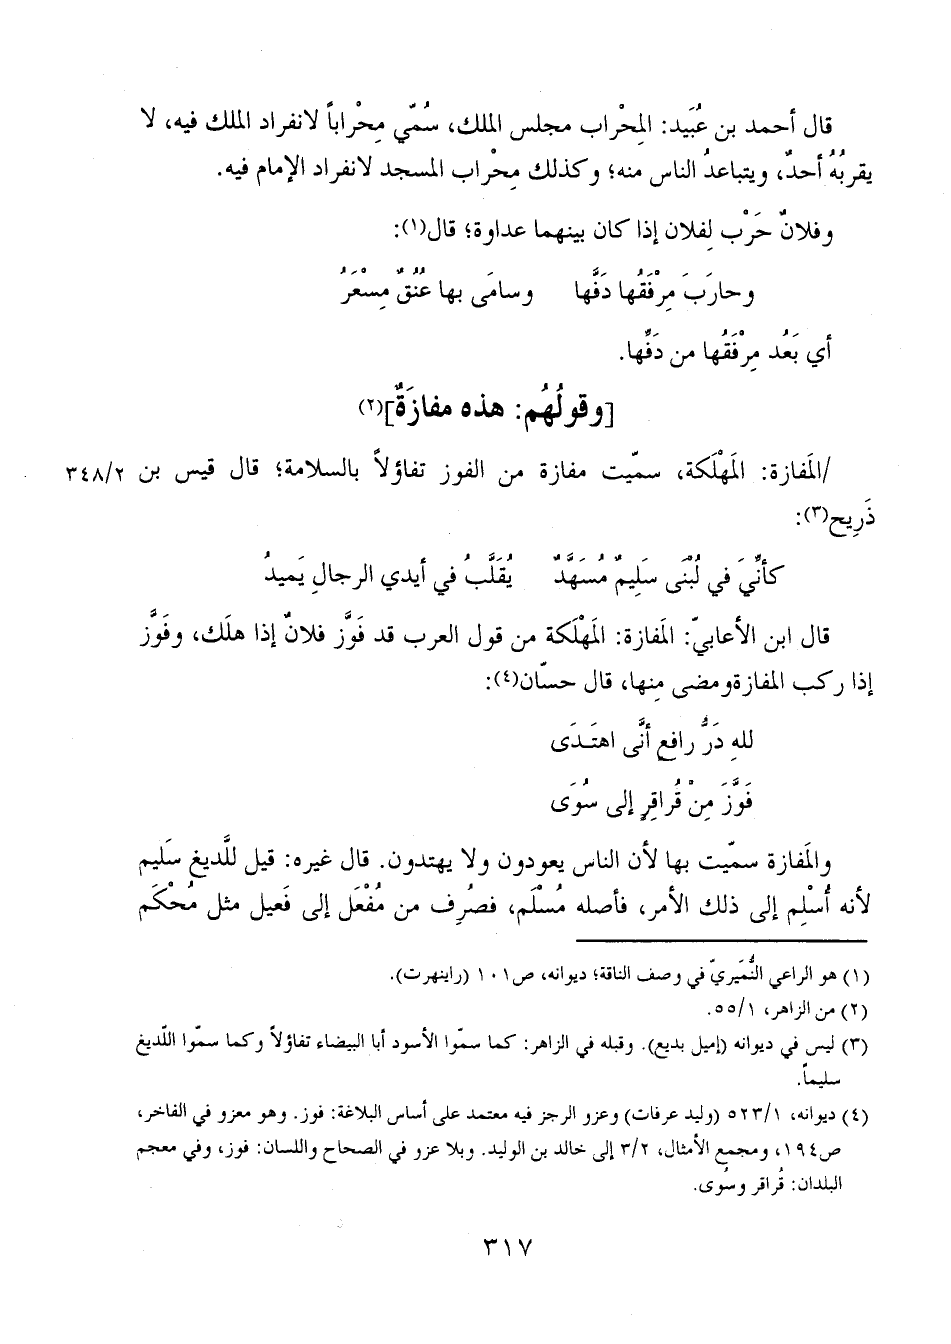 قال أحمد بن عُبَيد: المِحْراب مجلس الملك، سُمّي مِحْراباً لانفراد الملك فيه، لا
يقربُهُ أحدٌ، ويتباعدُ الناس منه؛ وكذلك مِحْراب المسجد لانفراد الإمام فيه.
وفلانٌ حَرْب لِفلان إذا كان بينهما عداوة؛ قال(١):
وحارَبَ مِرْفَقُها دَفَّها وسامَى بها عُنُقٌ مِسْعَرُ
أي بَعُد مِرْفَقُها من دَفِّها.
[وقولُهُم: هذه مفازَةٌ](٢)
/المَفازة: المَهْلَكة، سمّيت مفازة من الفوز تفاؤلاً بالسلامة؛ قال قيس بن ٣٤٨/٢
ذَرِيح(٣):
كأنِّيَ في لُبْنَى سَلِيمٌ مُسَهَّدٌ يُقَلَّبُ في أيدي الرجالِ يَميدُ
قال ابن الأعابيّ: المَفازة: المَهْلَكة من قول العرب قد فَوَّز فلانٌ إذا هلَك، وفَوَّز
إذا ركب المفازةومضى مِنها، قال حسّان(٤):
للهِ دَرُّ رافعٍ أنَّى اهتَدَى
فَوَّزَ مِنْ قُراقِرٍ إلى سُوَى
والمَفازة سمّيت بها لأن الناس يعودون ولا يهتدون. قال غيره: قيل للَّديغ سَليم
لأنه أُسْلِم إلى ذلك الأمر، فأصله مُسْلَم، فصُرِف من مُفْعَل إلى فَعيل مثل مُحْكَم
(١) هو الراعي النُّمَيريّ في وصف الناقة؛ ديوانه، ص١٠١ (راينهرت).
(٢) من الزاهر، ٥٥/١.
(٣) ليس في ديوانه (إميل بديع). وقبله في الزاهر: كما سمّوا الأسود أبا البيضاء تفاؤلاً وكما سمّوا اللّديغ
سليماً.
(٤) ديوانه، ٥٢٣/١ (وليد عرفات) وعزو الرجز فيه معتمد على أساس البلاغة: فوز. وهو معزو في الفاخر،
ص١٩٤، ومجمع الأمثال، ٣/٢ إلى خالد بن الوليد. وبلا عزو في الصحاح واللسان: فوز، وفي معجم
البلدان: قُراقر وسُوى.
٣١٧